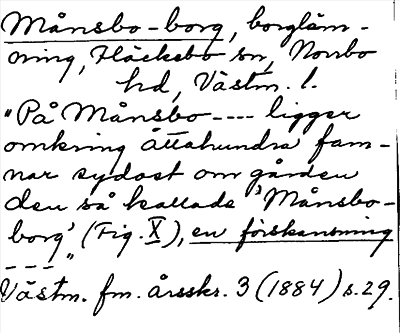 Månsbo-borg, borgläm-
ning, Fläckebo sn, Norrbo
hd, Västm. l.
"På Månsbo ---- ligger
omkring åttahundra fam-
nar sydost om gården
den så kallade 'Månsbo-
borg' (Fig. X), en förskansning
---- "
Västm. fm. årsskr. 3 (1884) s. 29.